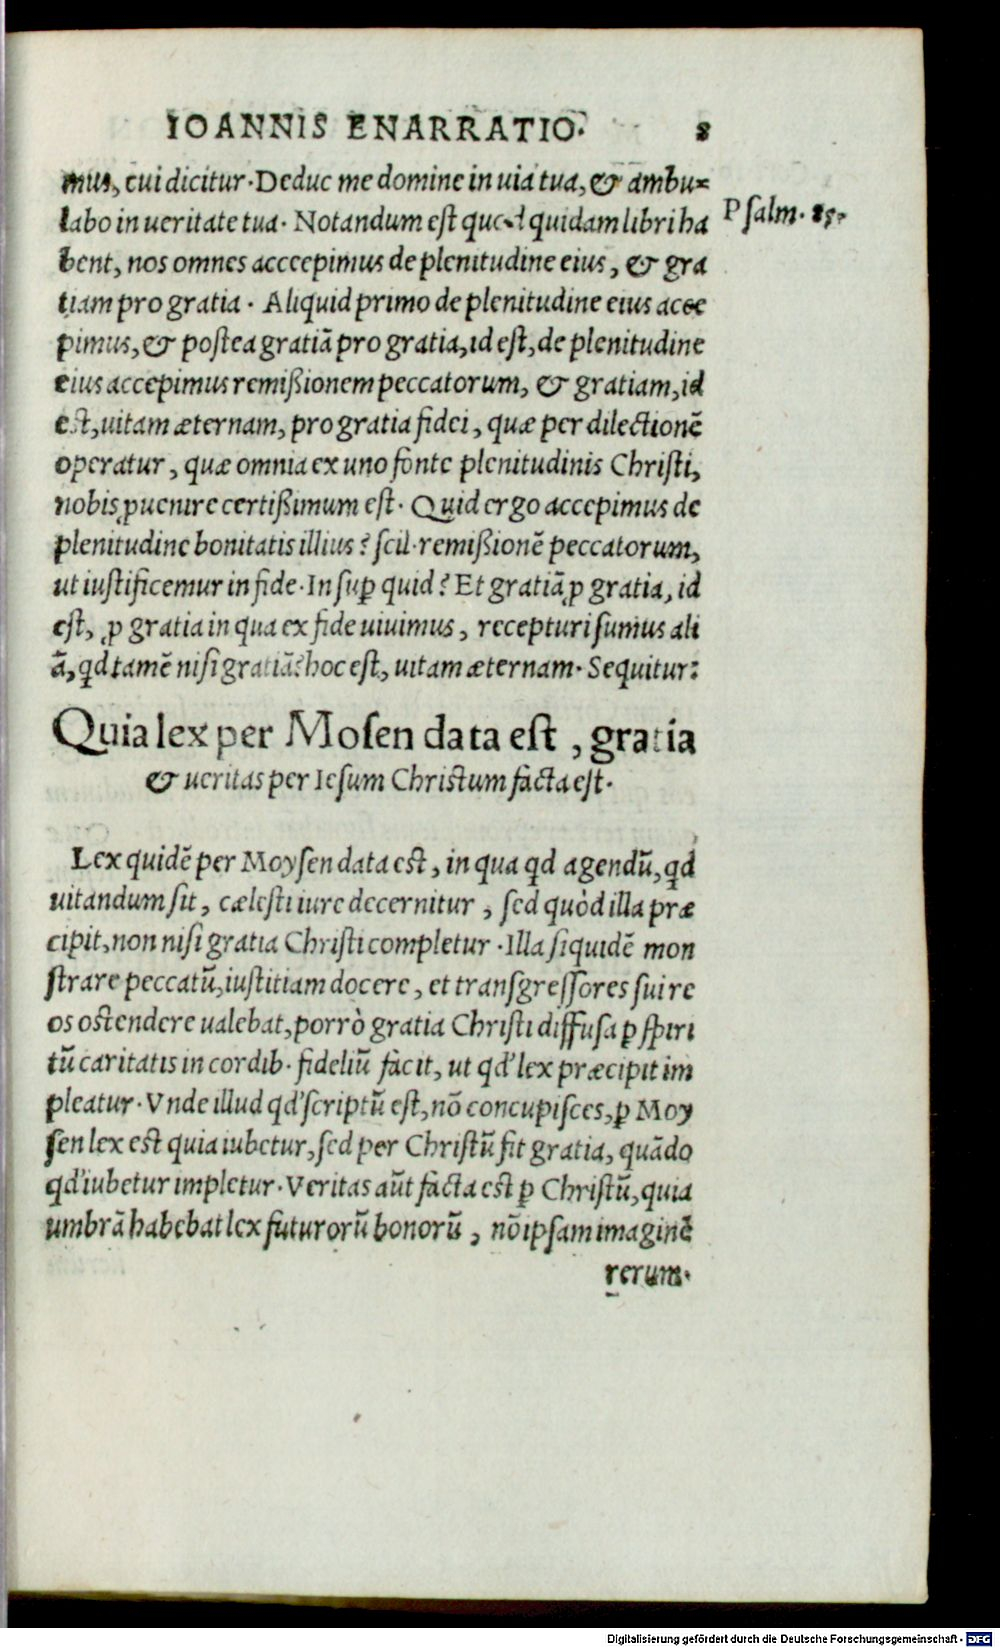 IOANNIS ENARRATIO. 8
mus, cui dicitur. Deduc me domine in uia tua, & ambu=
labo in ueritate tua. Notandum est quod quidam libri ha
Psalm. 85.
bent, nos omnes accepimus de plenitudine eius, & gra
tiam pro gratia. Aliquid primo de plenitudine eius acce
pimus, & postea gratiã pro gratia, id est, de plenitudine
eius accepimus remißionem peccatorum, & gratiam, id
est, uitam æternam, pro gratia fidei, quæ per dilectionẽ
operatur, quæ omnia ex uno fonte plenitudinis Christi,
nobis ꝓuenire certißimum est. Quid ergo accepimus de
plenitudine bonitatis illius? scil. remißionẽ peccatorum,
ut iustificemur in fide. Insuꝑ quid? Et gratiã ꝓ gratia, id
est, ꝓ gratia in qua ex fide uiuimus, recepturi sumus ali
ã, qd tamẽ nisi gratiã? hoc est, uitam æternam. Sequitur:
Quia lex per Mosen data est, gratia
& ueritas per Iesum Christum facta est.
Lex quidẽ per Moysen data est, in qua qd agendũ, qd
uitandum sit, cælesti iure decernitur, sed quòd illa præ
cipit, non nisi gratia Christi completur. Illa siquidẽ mon
strare peccatũ, iustitiam docere, et transgressores sui re
os ostendere ualebat, porrò gratia Christi diffusa ꝑ spiri
tũ caritatis in cordib. fideliũ facit, ut qd' lex præcipit im
pleatur. Vnde illud qd' scriptũ est, nõ concupisces, ꝑ Moy
sen lex est quia iubetur, sed per Christũ fit gratia, quãdo
qd' iubetur impletur. Veritas aũt facta est ꝑ Christũ, quia
umbrã habebat lex futurorũ bonorũ, nõ ipsam imaginẽ
rerum.
Digitalisierung gefördert durch die Deutsche Forschungsgemeinschaft - DFG